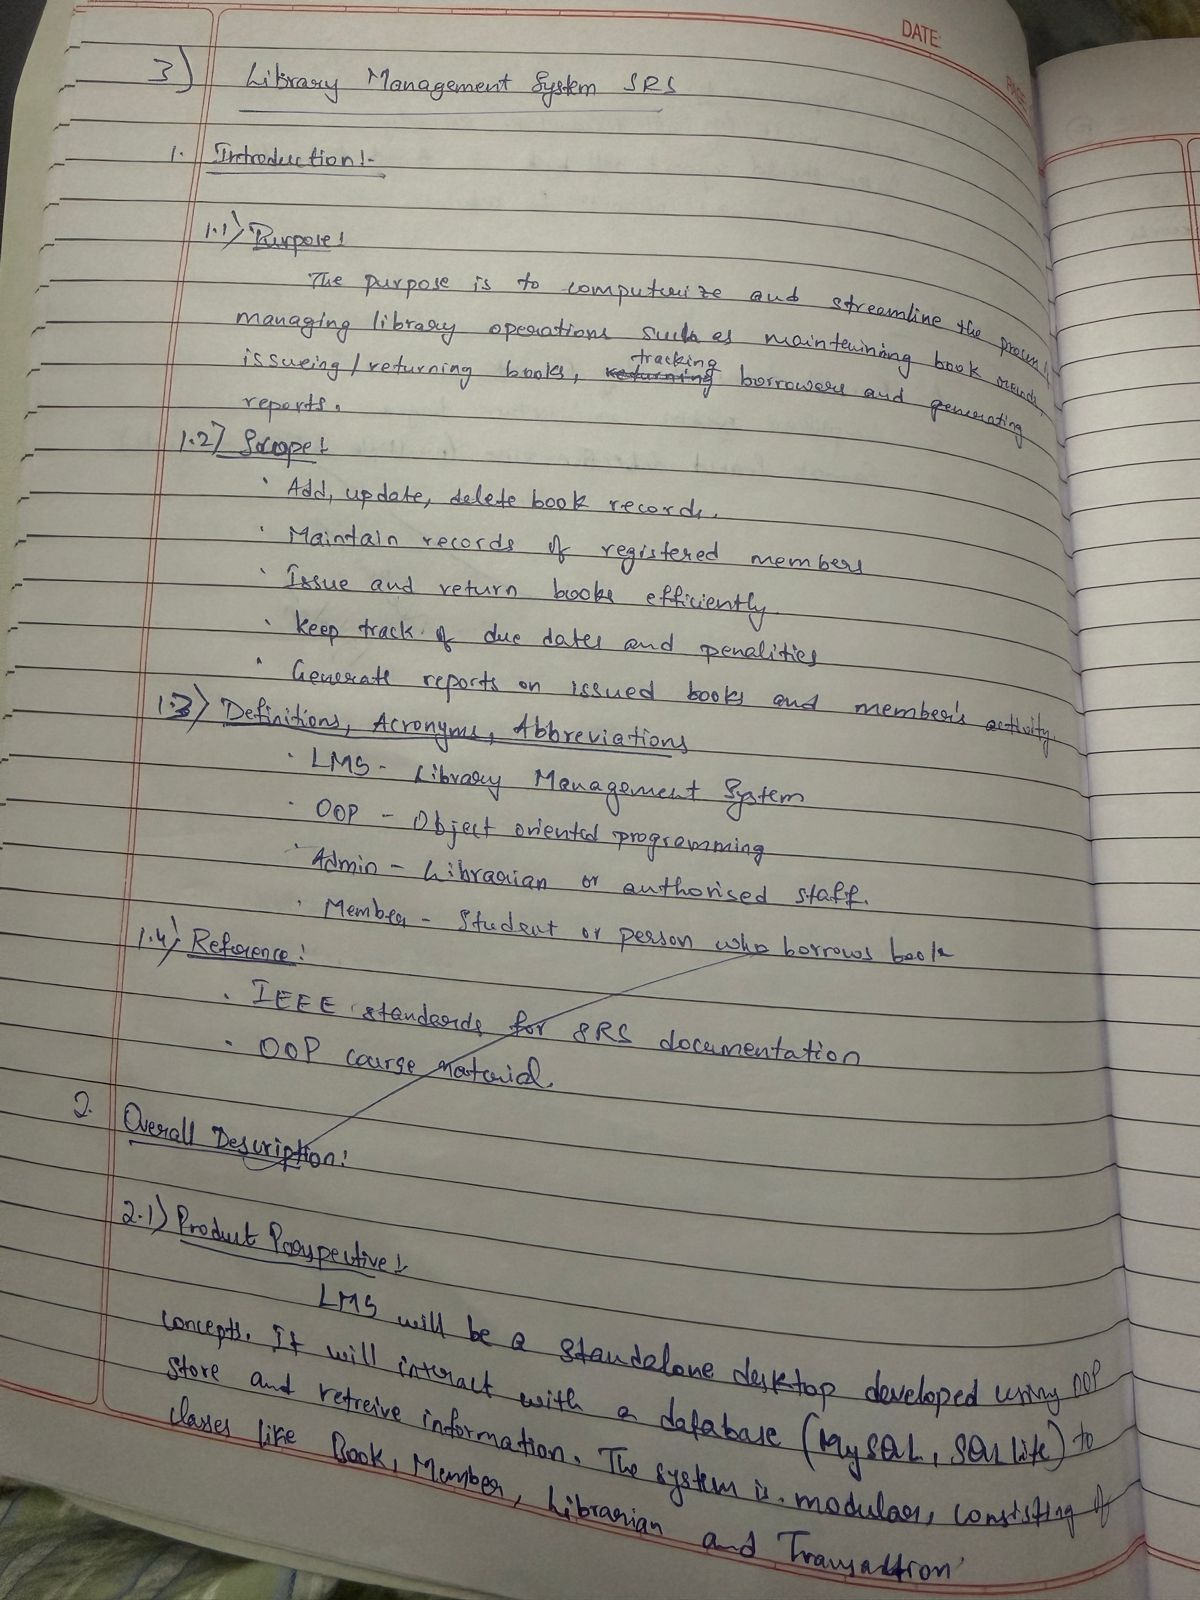 DATE:
PAGE
3) Library Management System SRS
1. Introduction:-
1.1) Purpose:
The purpose is to computerize and streamline the process of
managing library operations such as maintaining book records,
issueing/returning books, ~~returning~~ tracking borrowers and generating
reports.
1.2) Scope:
· Add, update, delete book records.
· Maintain records of registered members
· Issue and return books efficiently.
· Keep track of due dates and penalities
· Generate reports on issued books and member's activity.
1.3) Definitions, Acronyms, Abbreviations
· LMS - Library Management System
· OOP - Object oriented programming
· Admin - Librarian or authorised staff.
· Member - Student or person who borrows book
1.4) Reference:
· IEEE standards for SRS documentation
· OOP course material.
2. Overall Description:
2.1) Product Perspective:
LMS will be a standalone desktop developed using OOP
concepts. It will interact with a database (MySQL, SQL lite) to
store and retreive information. The system is modular, consisting of
classes like Book, Member, Librarian and Transaction